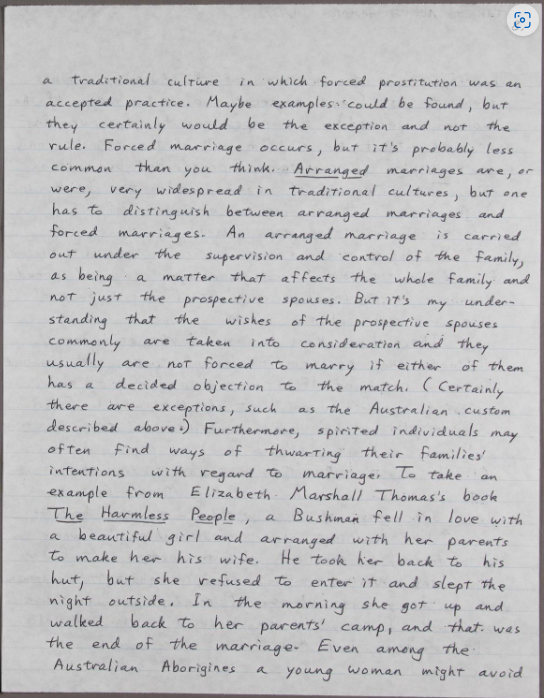 a traditional culture in which forced prostitution was an
accepted practice. Maybe examples could be found, but
they certainly would be the exception and not the
rule. Forced marriage occurs, but it's probably less
common than you think. Arranged marriages are, or
were, very widespread in traditional cultures, but one
has to distinguish between arranged marriages and
forced marriages. An arranged marriage is carried
out under the supervision and control of the family,
as being a matter that affects the whole family and
not just the prospective spouses. But it's my under-
standing that the wishes of the prospective spouses
commonly are taken into consideration and they
usually are not forced to marry if either of them
has a decided objection to the match. (Certainly
there are exceptions, such as the Australian custom
described above.) Furthermore, spirited individuals may
often find ways of thwarting their families'
intentions with regard to marriage. To take an
example from Elizabeth Marshall Thomas's book
The Harmless People, a Bushman fell in love with
a beautiful girl and arranged with her parents
to make her his wife. He took her back to his
hut, but she refused to enter it and slept the
night outside. In the morning she got up and
walked back to her parents' camp, and that was
the end of the marriage. Even among the
Australian Aborigines a young woman might avoid